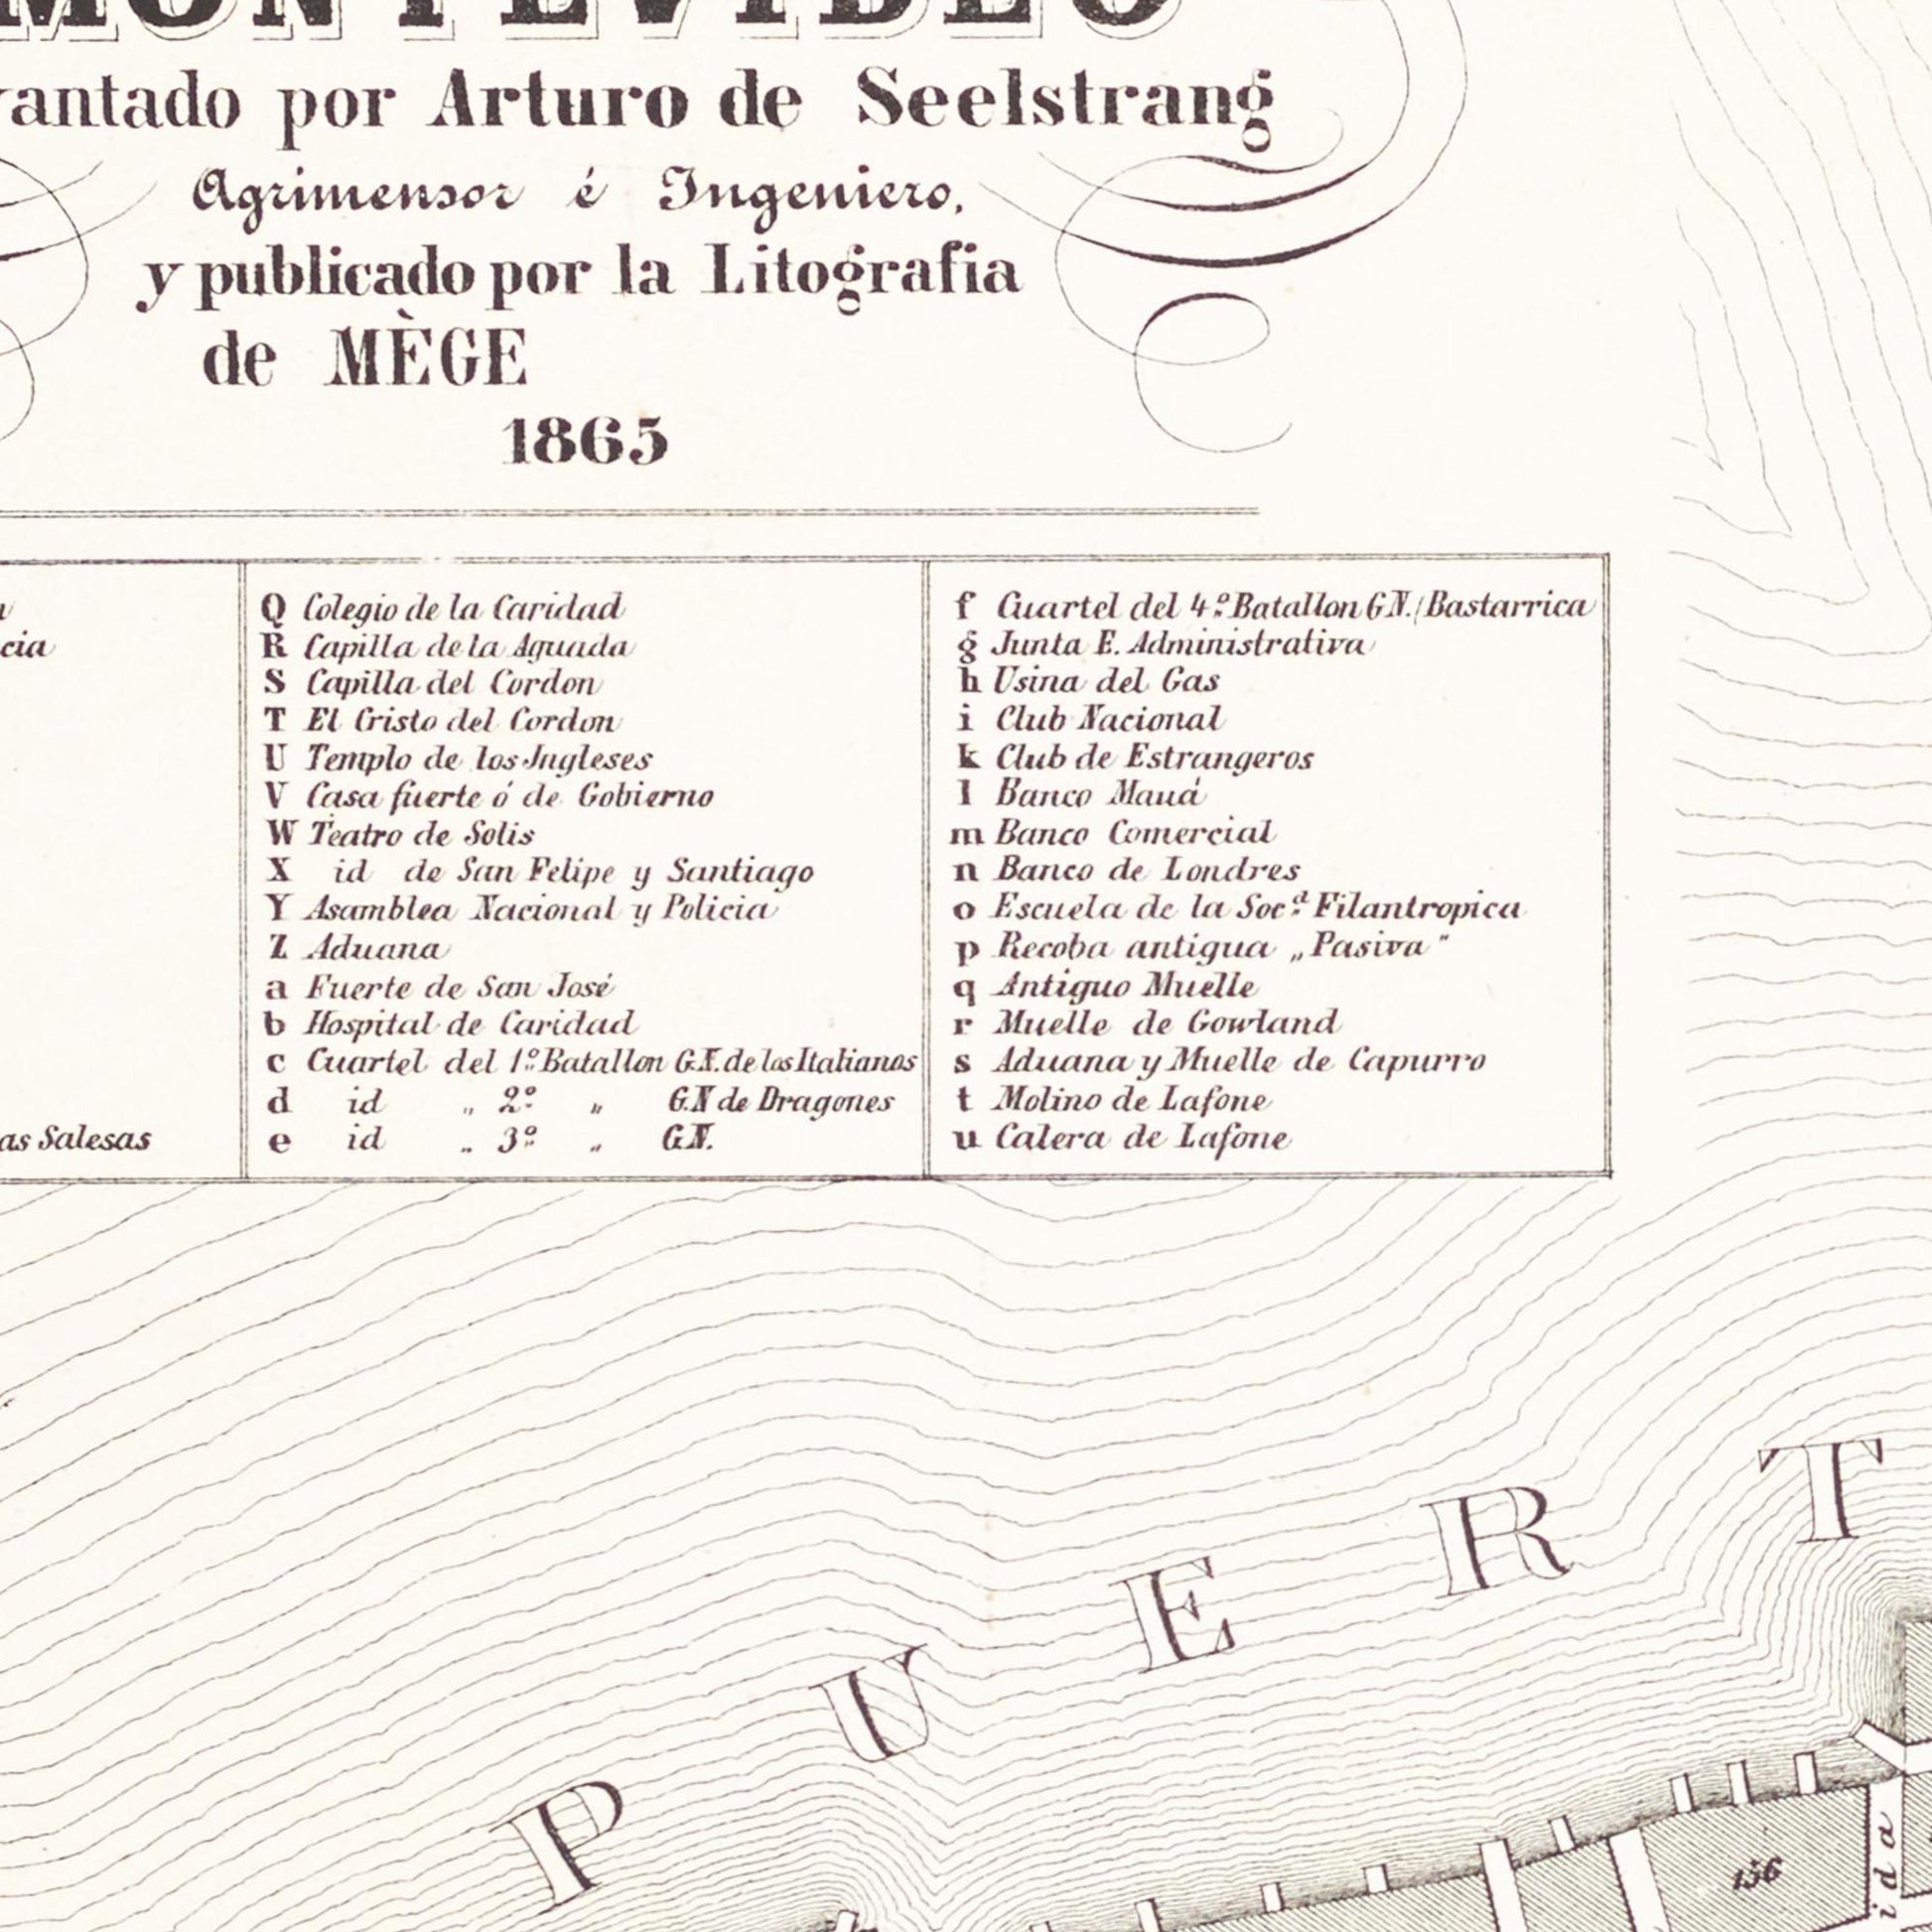 MONTEVIDEO
vantado por Arturo de Seelstrang
Agrimensor é Ingeniero,
y publicado por la Litografia
de MÈGE
1865
cia
as Salesas
Q Colegio de la Caridad
R Capilla de la Aguada
S Capilla del Cordon
T El Cristo del Cordon
U Templo de los Ingleses
V Casa fuerte ó de Gobierno
W Teatro de Solis
X id de San Felipe y Santiago
Y Asamblea Nacional y Policia
Z Aduana
a Fuerte de San José
b Hospital de Caridad
c Cuartel del 1º Batallon G.N. de los Italianos
d id „ 2º „ G.N de Dragones
e id „ 3º „ G.N.
f Cuartel del 4º Batallon G.N./Bastarrica
g Junta E. Administrativa
h Usina del Gas
i Club Nacional
k Club de Estrangeros
l Banco Mauá
m Banco Comercial
n Banco de Londres
o Escuela de la Socᵈ Filantropica
p Recoba antigua „Pasiva"
q Antiguo Muelle
r Muelle de Gowland
s Aduana y Muelle de Capurro
t Molino de Lafone
u Calera de Lafone
PUERT
156
ida